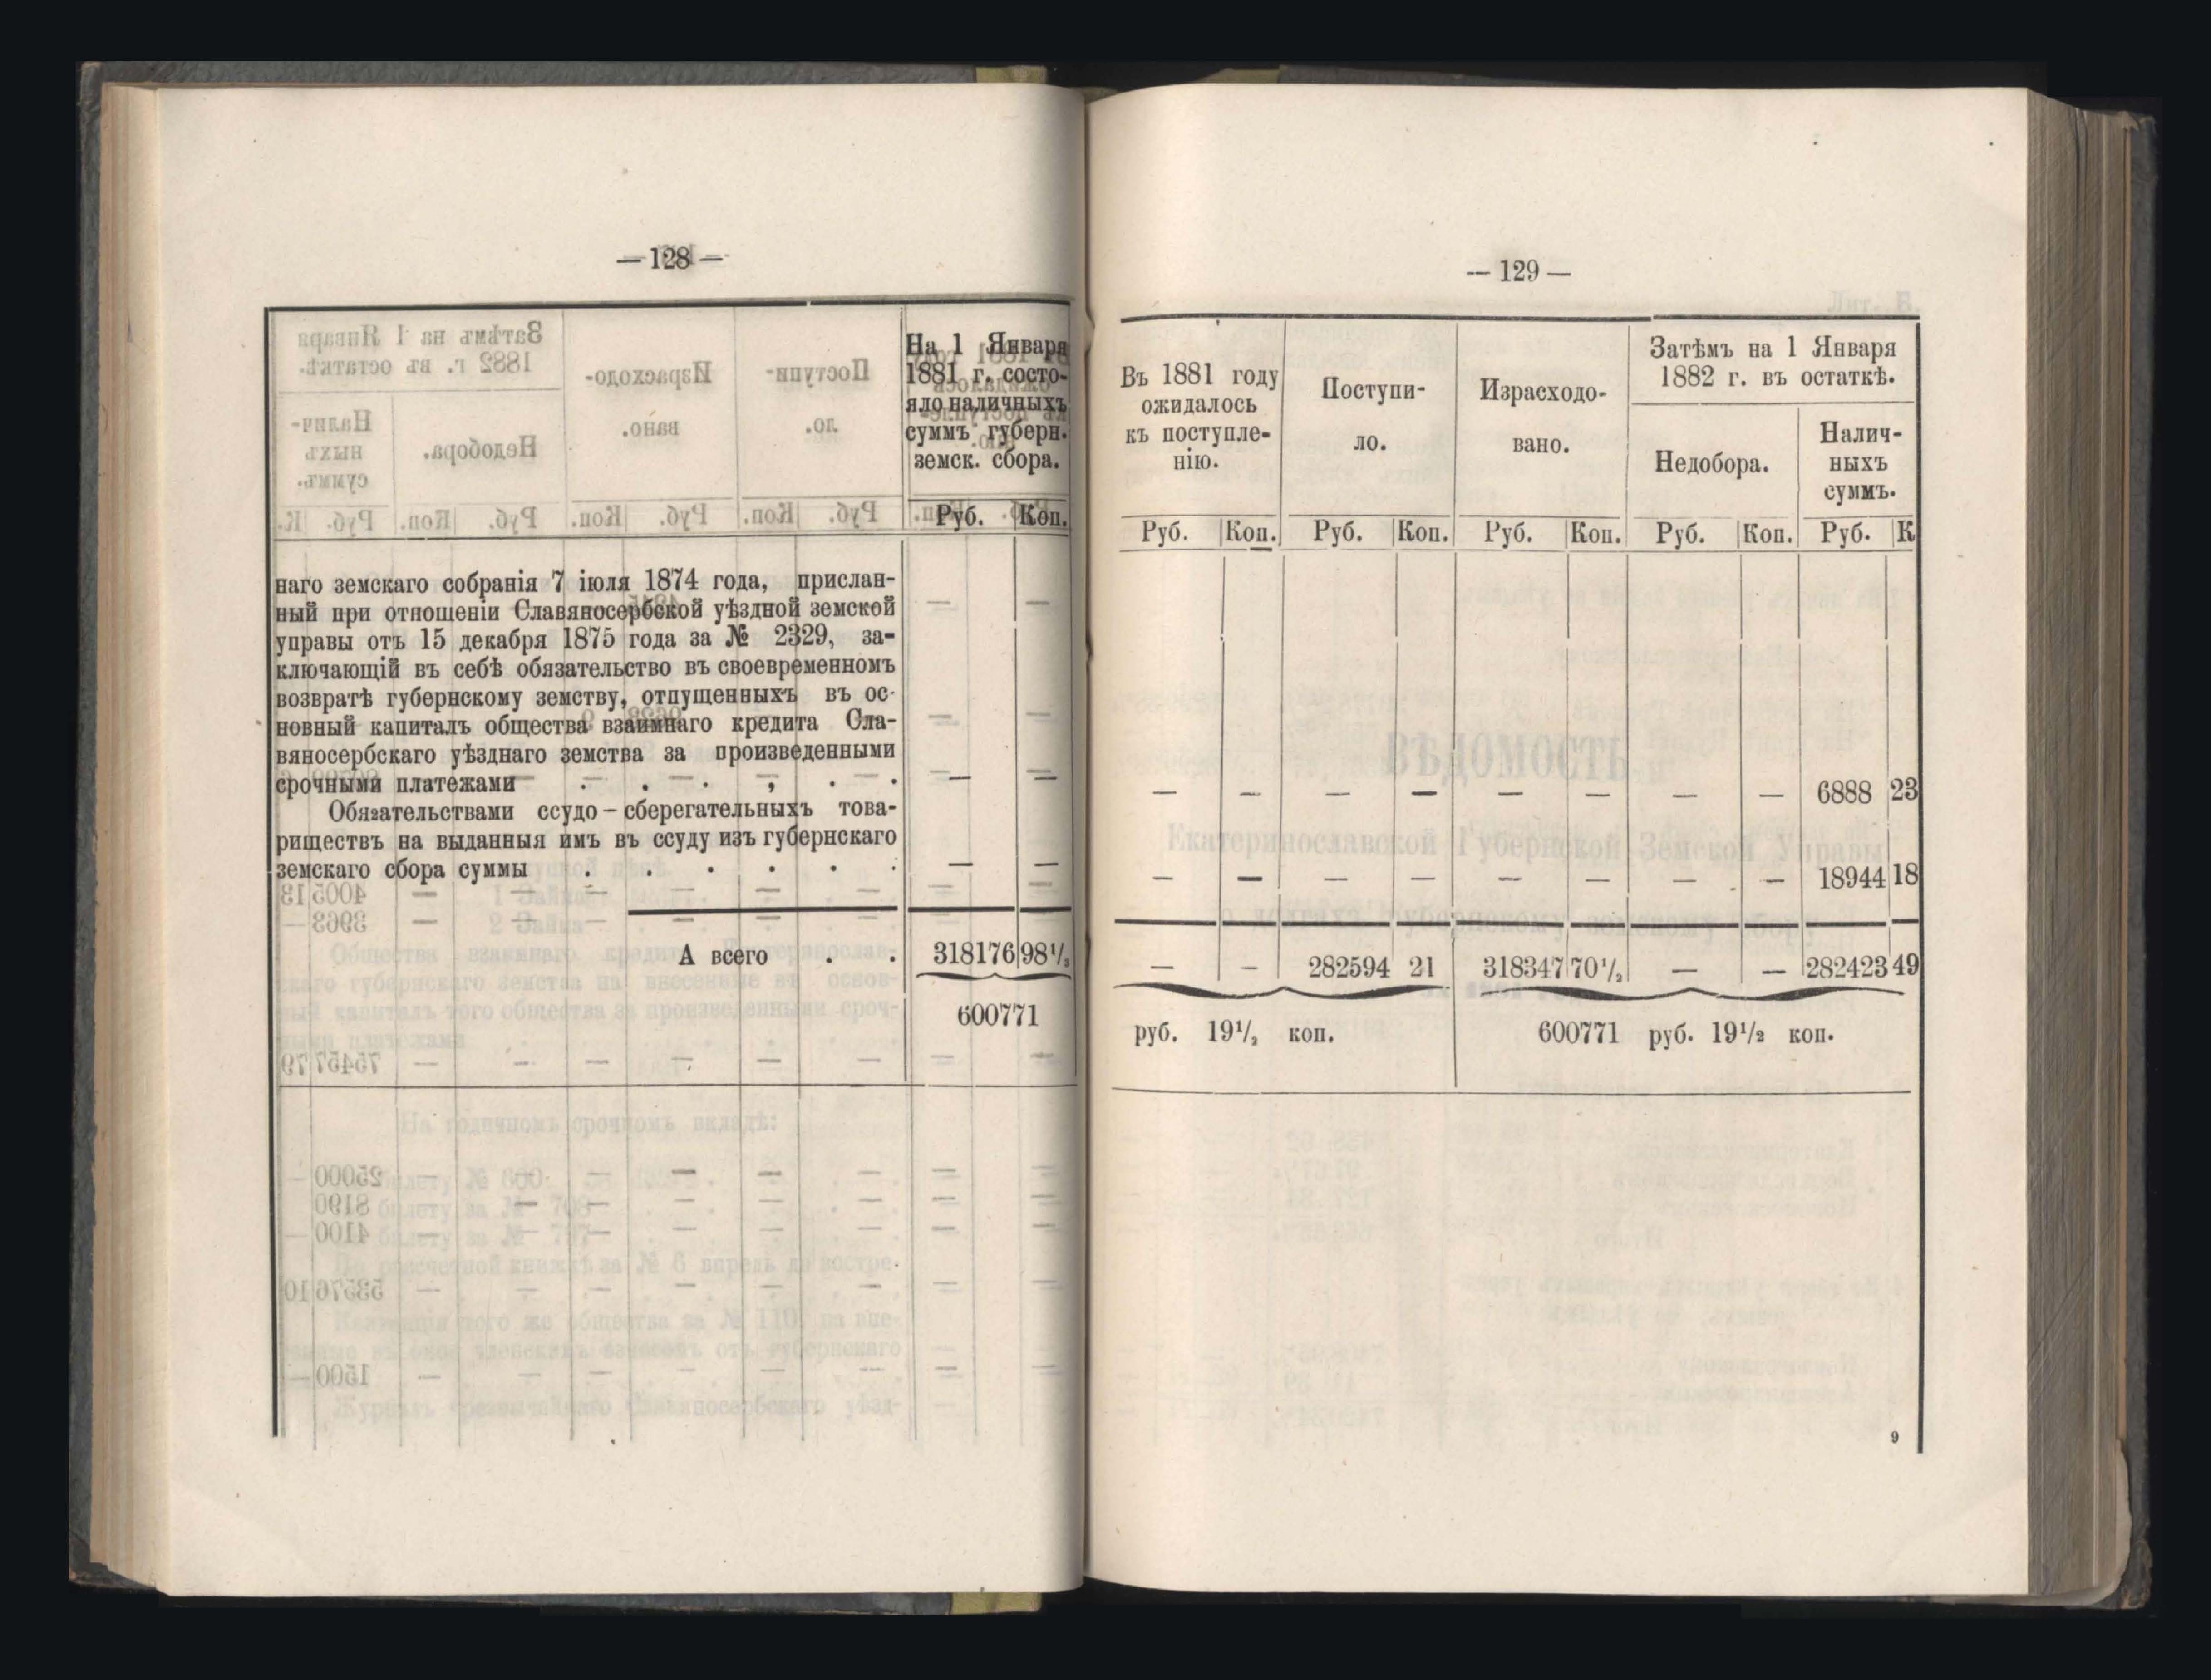 — 128 —
На 1 Января
1881 г. состо-
яло наличныхъ
суммъ губерн.
земск. сбора.
Руб. Коп.
наго земскаго собранія 7 іюля 1874 года, прислан-
ный при отношеніи Славяносербской уѣздной земской
управы отъ 15 декабря 1875 года за № 2329, за-
ключающій въ себѣ обязательство въ своевременномъ
возвратѣ губернскому земству, отпущенныхъ въ ос-
новный капиталъ общества взаимнаго кредита Сла-
вяносербскаго уѣзднаго земства за произведенными
срочными платежами . . . , . . — —
Обязательствами ссудо-сберегательныхъ това-
риществъ на выданныя имъ въ ссуду изъ губернскаго
земскаго сбора суммы . . . . . . — —
А всего . . 318176 98¹/₂
600771
— 129 —
Въ 1881 году
ожидалось
къ поступле-
нію.
Поступи-
ло.
Израсходо-
вано.
Затѣмъ на 1 Января
1882 г. въ остаткѣ.
Недобора.
Налич-
ныхъ
суммъ.
Руб. Коп. Руб. Коп. Руб. Коп. Руб. Коп. Руб. К
— — — — — — — — 6888 23
— — — — — — — — 18944 18
— — 282594 21 318347 70¹/₂ — — 282423 49
руб. 19¹/₂ коп. 600771 руб. 19¹/₂ коп.
9